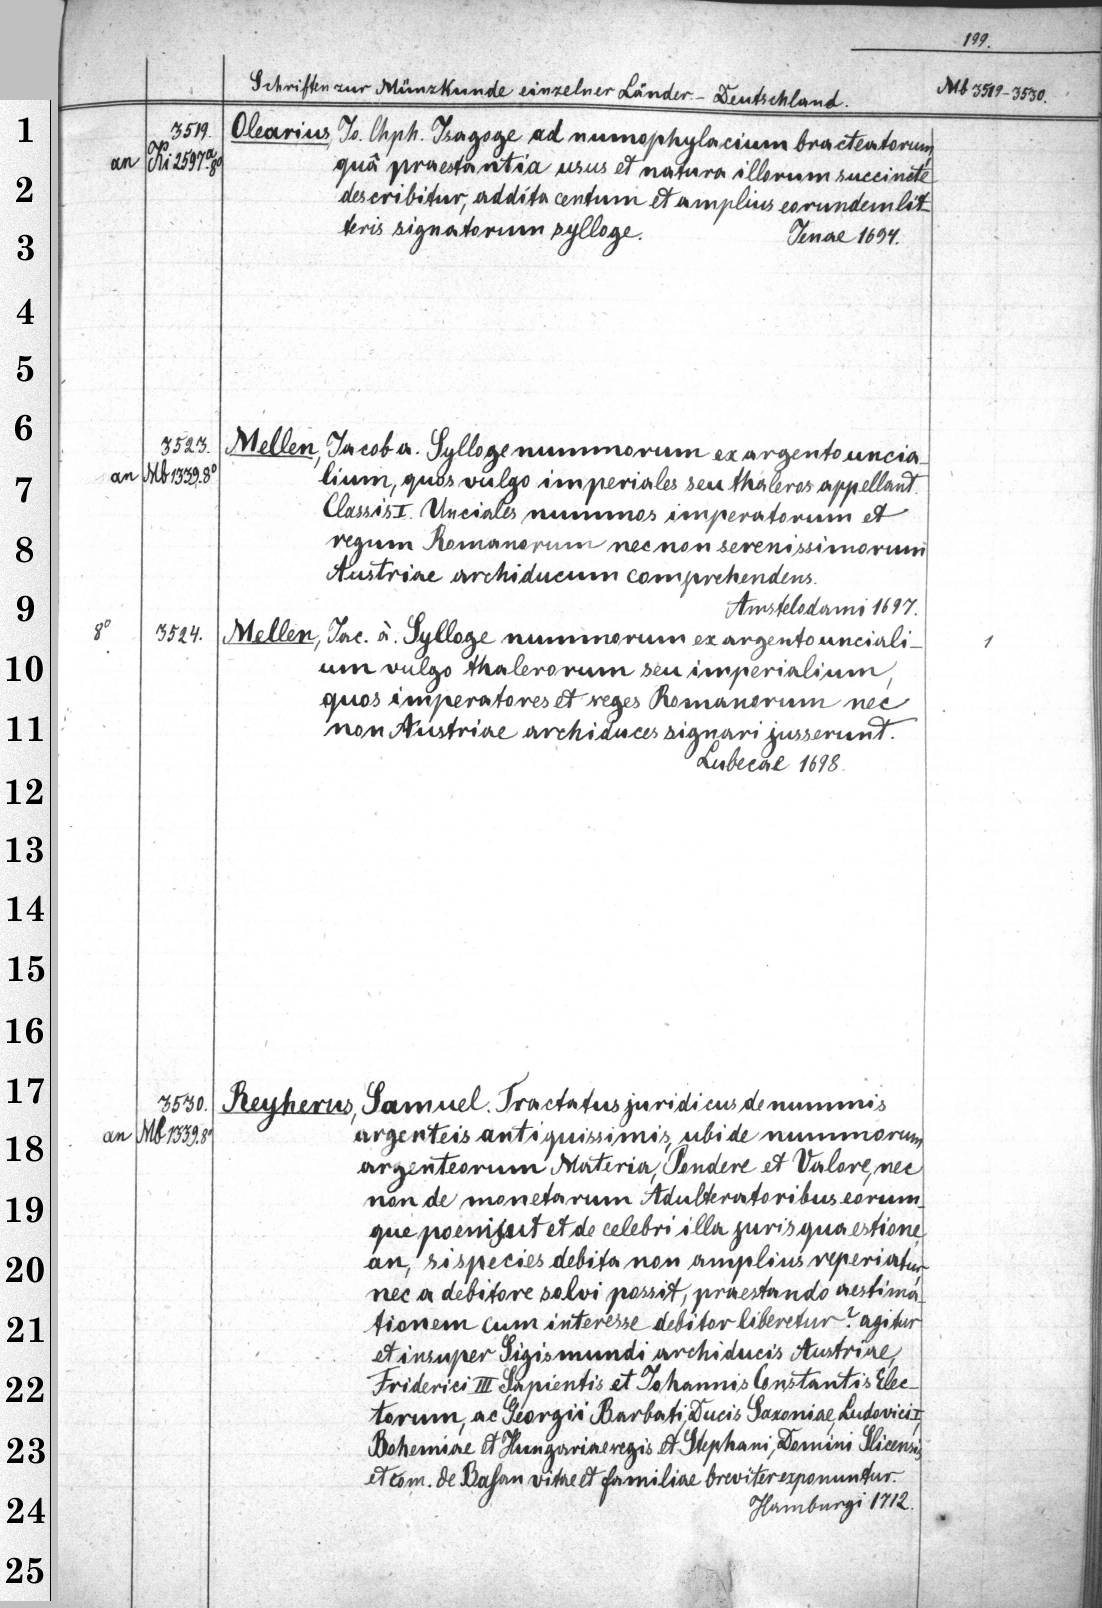 199.
Schriften zur Münzkunde einzelner Länder. – Deutschland. Mb 3519–3530.
3519. Olearius, Jo. Chph. Isagoge ad numophylacium bracteatorum,
an Ki 2597ª.8° quâ praestantia usus et natura illorum succincte
describitur, addita centum et amplius eorundem lit-
teris signatorum sylloge. Jenae 1694.
3523. Mellen, Jacob a. Sylloge nummorum ex argento uncia-
an Mb 1339.8° lium, quos vulgo imperiales seu thaleros appellant.
Classis I. Unciales nummos imperatorum et
regum Romanorum nec non serenissimorum
Austriae archiducum comprehendens.
Amstelodami 1697.
8° 3524. Mellen, Jac. à. Sylloge nummorum ex argento unciali- 1
um vulgo thalerorum seu imperialium,
quos imperatores et reges Romanorum nec
non Austriae archiduces signari jusserunt.
Lubecae 1698.
3530. Reyherus, Samuel. Tractatus juridicus de nummis
an Mb 1339.8° argenteis antiquissimis, ubi de nummorum
argenteorum Materia, Pondere et Valore, nec
non de monetarum Adulteratoribus eorum-
que poenis, ut et de celebri illa juris quaestione,
an, si species debita non amplius reperiatur,
nec a debitore solvi possit, praestando aestima-
tionem cum interesse debitor liberetur? agitur
et insuper Sigismundi archiducis Austriae,
Friderici III Sapientis et Johannis Constantis Elec-
torum, ac Georgii Barbati, Ducis Saxoniae, Ludovici I,
Bohemiae et Hungariae regis et Stephani, Domini Slicensis
et com. de Basan vitae et familiae breviter exponuntur.
Hamburgi 1712.
1
2
3
4
5
6
7
8
9
10
11
12
13
14
15
16
17
18
19
20
21
22
23
24
25